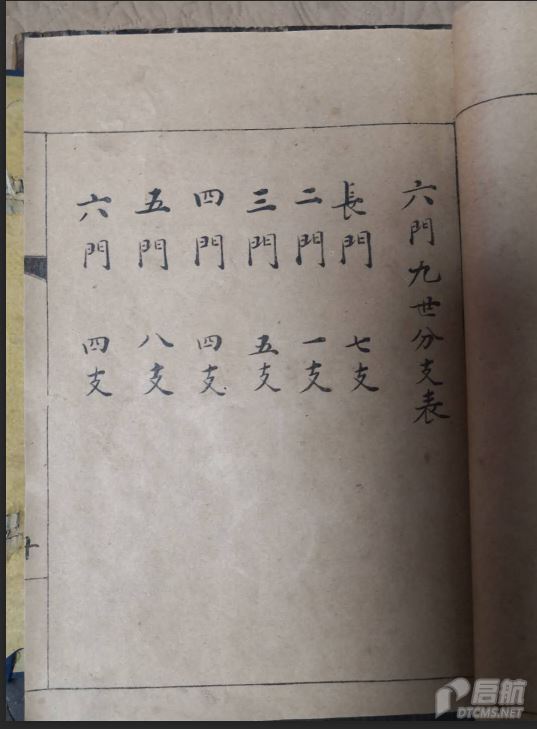 六門九世分支表
長門 七支
二門 一支
三門 五支
四門 四支
五門 八支
六門 四支
十
启航
DTCMS.NET